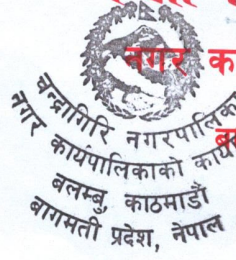 नगर क
चन्द्रागिरि नगरपालिका
नगर कार्यपालिकाको कार्या
बलम्बु, काठमाडौं
बागमती प्रदेश, नेपाल